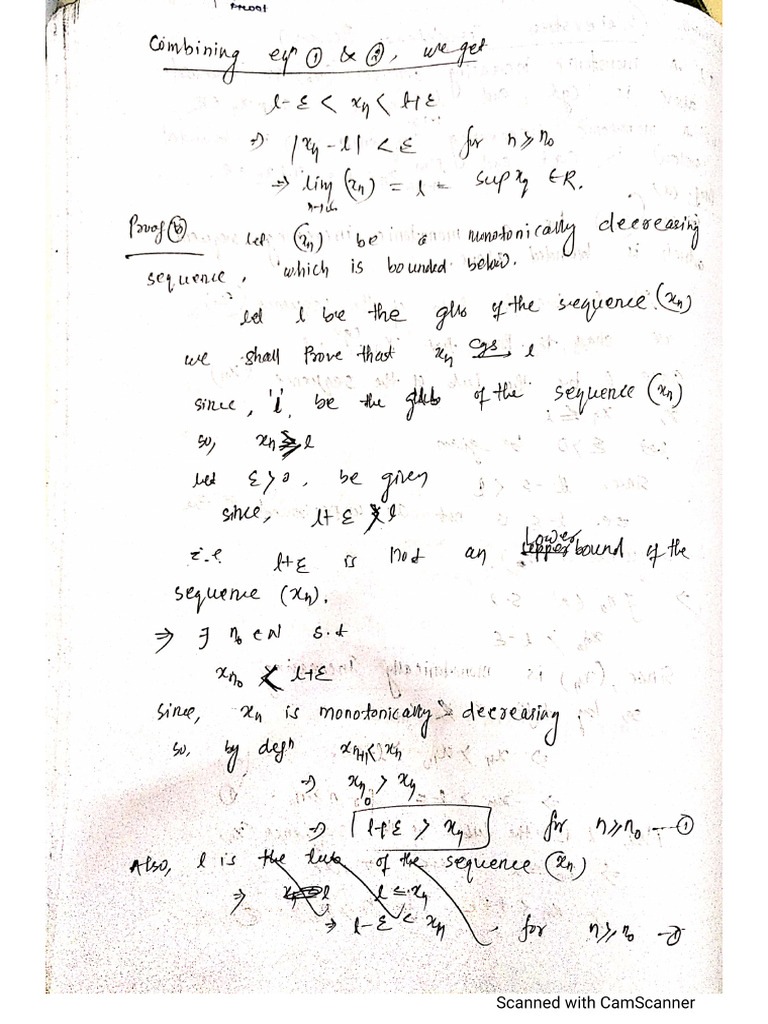 Proof
Combining eqⁿ ① & ②, we get
l-ε < xₙ < l+ε
⇒ |xₙ - l| < ε for n ≥ n₀
⇒ lim (xₙ) = l = sup xₙ ∈ R.
n→∞
Proof ⓑ Let (xₙ) be a monotonically decreasing
sequence, which is bounded below.
Let l be the glb of the sequence (xₙ)
we shall Prove that xₙ cgs l
since, 'l' be the glb of the sequence (xₙ)
so, xₙ ≥ l
Let ε > 0, be given
since, l+ε > l
i.e l+ε is not an Lower bound of the
sequence (xₙ).
⇒ ∃ n₀ ∈ N s.t
xₙ₀ < l+ε
since, xₙ is monotonically decreasing,
so, by defⁿ xₙ₊₁ < xₙ
⇒ xₙ₀ > xₙ
⇒ l+ε > xₙ for n ≥ n₀ — ①
Also, l is the lub of the sequence (xₙ)
⇒ l ≤ xₙ
⇒ l-ε < xₙ for n ≥ n₀ — ②
Scanned with CamScanner